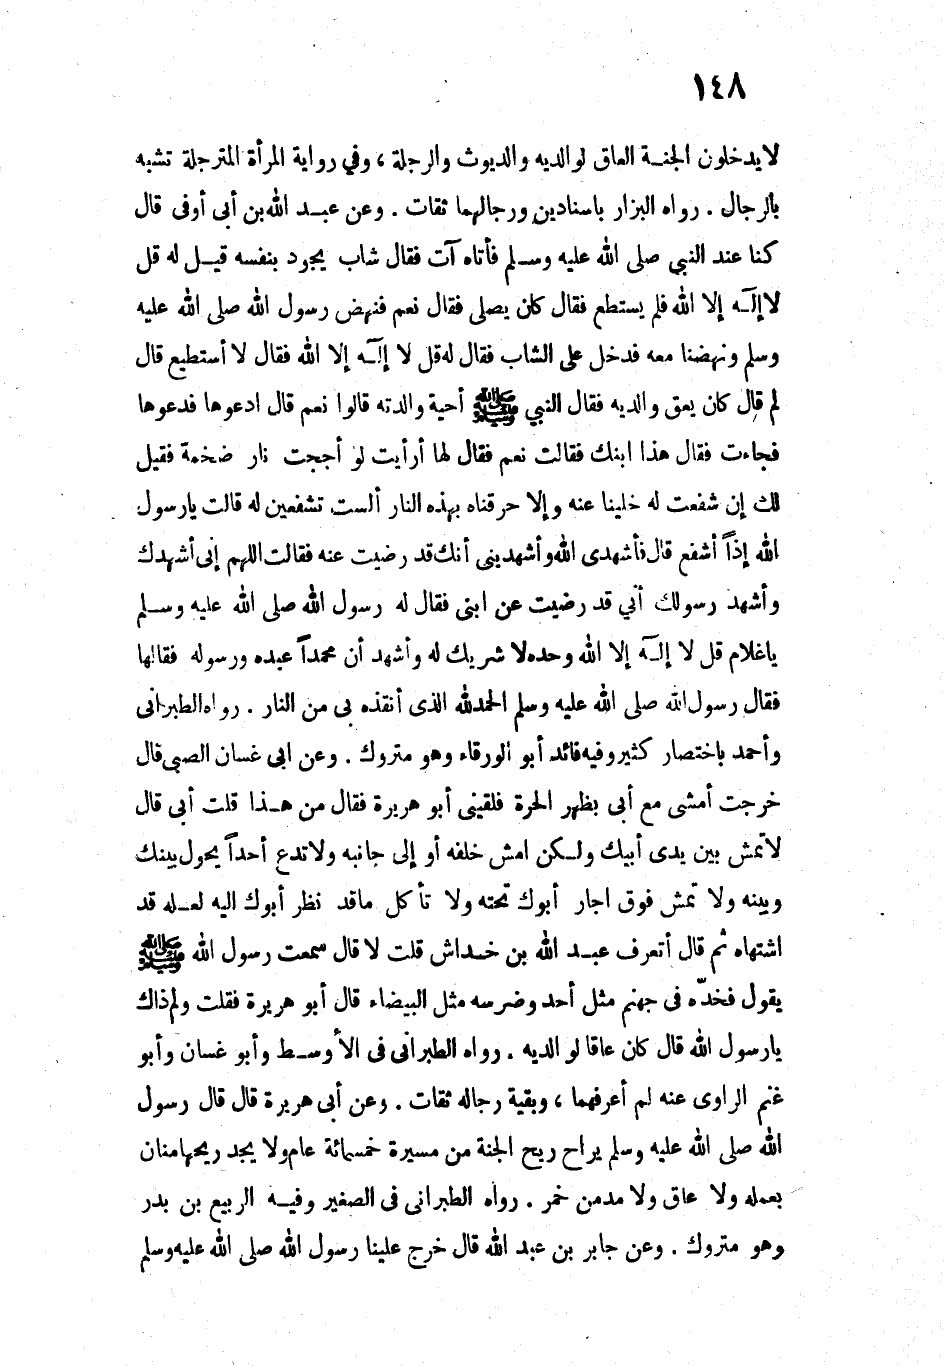 ١٤٨
لا يدخلون الجنة العاق لوالديه والديوث والرجلة ، وفي رواية المرأة المترجلة تشبه
بالرجال . رواه البزار باسنادين ورجالهما ثقات . وعن عبد الله بن أبى أوفى قال
كنا عند النبي صلى الله عليه وسلم فأتاه آت فقال شاب يجود بنفسه قيل له قل
لا إله إلا الله فلم يستطع فقال كان يصلى فقال نعم فنهض رسول الله صلى الله عليه
وسلم ونهضنا معه فدخل على الشاب فقال له قل لا إله إلا الله فقال لا أستطيع قال
لم قال كان يعق والديه فقال النبي ﷺ أحية والدته قالوا نعم قال ادعوها فدعوها
فجاءت فقال هذا ابنك فقالت نعم فقال لها أرأيت لو أججت نار ضخمة فقيل
لك إن شفعت له خلينا عنه وإلا حرقناه بهذه النار ألست تشفعين له قالت يارسول
الله إذاً أشفع قال فأشهدى الله وأشهدينى أنك قد رضيت عنه فقالت اللهم إنى أشهدك
وأشهد رسولك أني قد رضيت عن ابنى فقال له رسول الله صلى الله عليه وسلم
ياغلام قل لا إله إلا الله وحده لا شريك له وأشهد أن محمداً عبده ورسوله فقالها
فقال رسول الله صلى الله عليه وسلم الحمد لله الذى أنقذه بى من النار . رواه الطبرانى
وأحمد باختصار كثير وفيه فائد أبو الورقاء وهو متروك . وعن ابى غسان الضبى قال
خرجت أمشى مع أبى بظهر الحرة فلقينى أبو هريرة فقال من هذا قلت أبى قال
لا تمش بين يدى أبيك ولكن امش خلفه أو إلى جانبه ولا تدع أحداً يحول بينك
وبينه ولا تمش فوق اجار أبوك تحته ولا تأكل ماقد نظر أبوك اليه لعله قد
اشتهاه ثم قال أتعرف عبد الله بن خداش قلت لا قال سمعت رسول الله ﷺ
يقول فخذه فى جهنم مثل أحد وضرسه مثل البيضاء قال أبو هريرة فقلت ولم ذاك
يارسول الله قال كان عاقا لوالديه . رواه الطبرانى فى الأوسط وأبو غسان وأبو
غنم الراوى عنه لم أعرفهما ، وبقية رجاله ثقات . وعن أبى هريرة قال قال رسول
الله صلى الله عليه وسلم يراح ريح الجنة من مسيرة خمسمائة عام ولا يجد ريحها منان
بعمله ولا عاق ولا مدمن خمر . رواه الطبرانى فى الصغير وفيه الربيع بن بدر
وهو متروك . وعن جابر بن عبد الله قال خرج علينا رسول الله صلى الله عليه وسلم